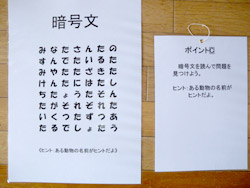 暗号文
みなたさんたの
すんでたいるた
みたやたざきた
けんたにはたし
ちょうたそんた
たがそれぞれた
いくつたずつあ
たるでしょたう
《ヒント:ある動物の名前がヒントだよ》
ポイント◎
暗号文を読んで問題を
見つけよう。
ヒント:ある動物の名前が
ヒントだよ。